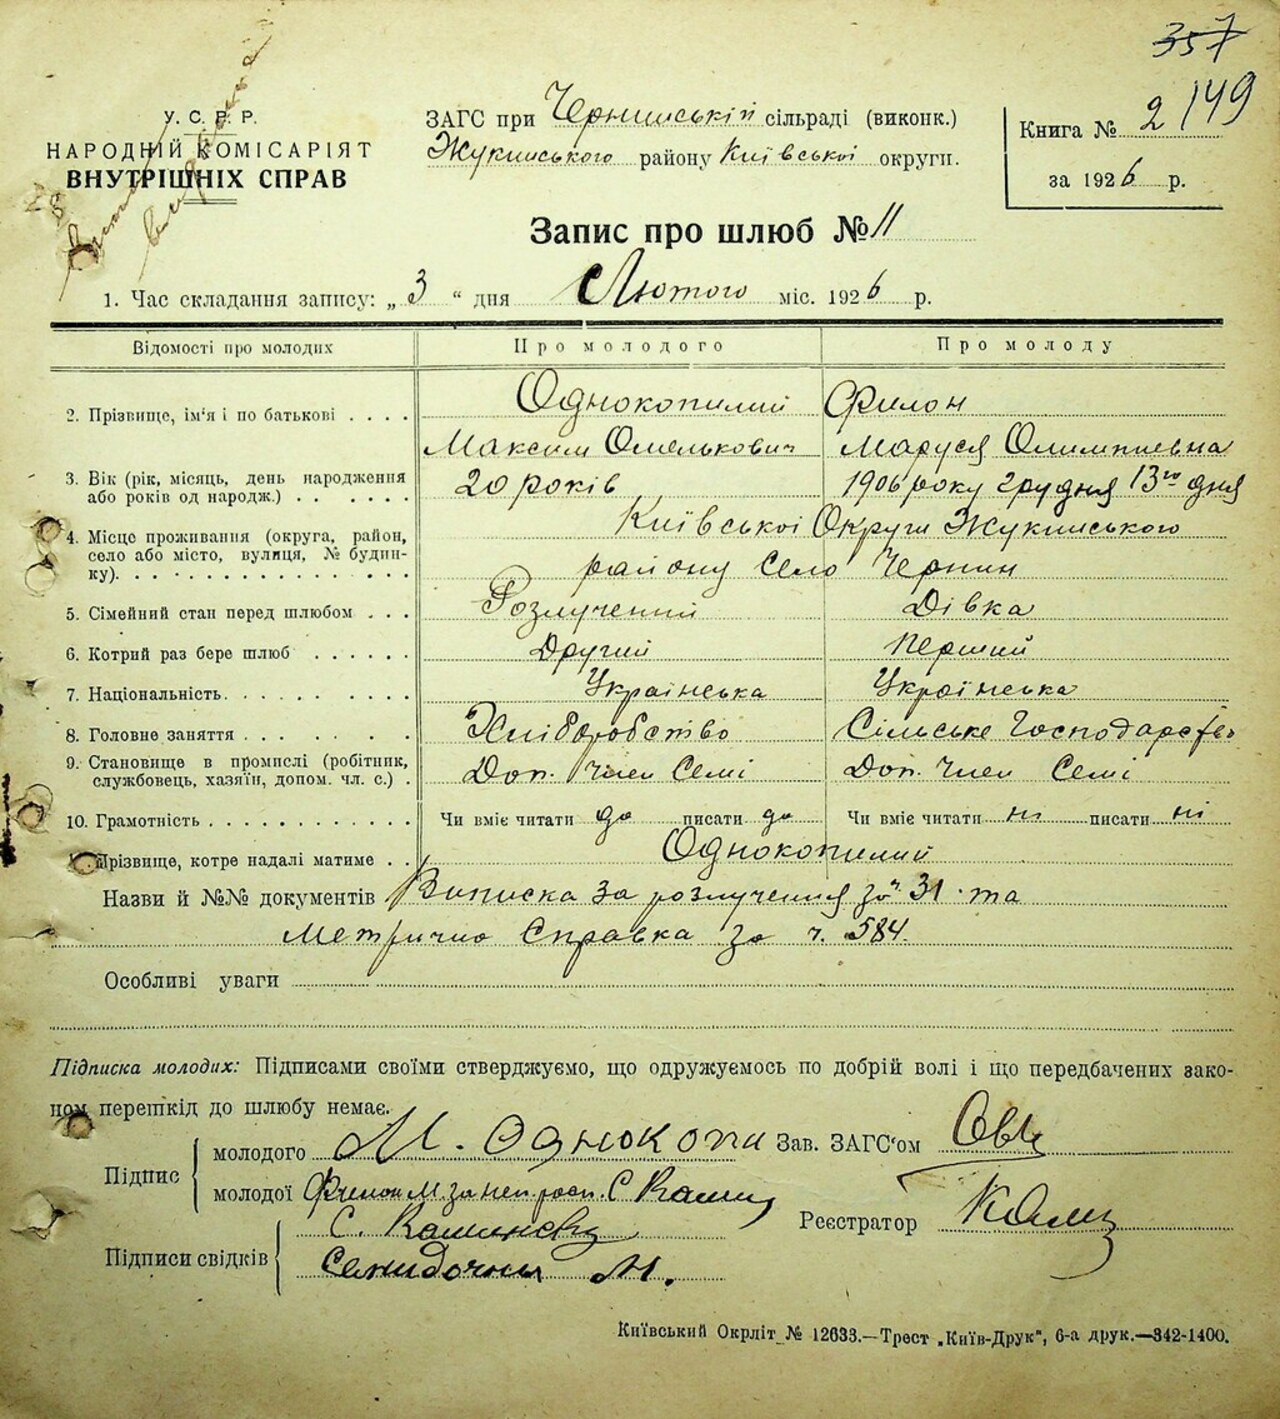 357
149
У. С. Р. Р.
НАРОДНІЙ КОМІСАРІЯТ
ВНУТРІШНІХ СПРАВ
ЗАГС при Чернинській сільраді (виконк.)
Жукинського району Київської округи.
Книга № 2
за 1926 р.
Запис про шлюб № 11
1. Час складання запису: „ 3 “ дня Лютого міс. 1926 р.
Відомості про молодих Про молодого Про молоду
2. Прізвище, ім'я і по батькові . . . . Однокопилий Филон
Максим Омелькович Маруся Олимпиевна
3. Вік (рік, місяць, день народження або років од народж.) . . . . . . 20 років 1906 року грудня 13го дня
4. Місце проживання (округа, район, село або місто, вулиця, № будинку). . . . . . . . . . . . . . . Київської Округи Жукинського
району Село Чернин
5. Сімейний стан перед шлюбом . . . Розлученний Дівка
6. Котрий раз бере шлюб . . . . . . Другий Перший
7. Національність. . . . . . . . . . Українська Українська
8. Головне заняття . . . . . . . . . Хліборобство Сільське Господарство
9. Становище в промислі (робітник, службовець, хазяїн, допом. чл. с.) . Доп. Член Семі Доп. Член Семі
10. Грамотність . . . . . . . . . . . . Чи вміє читати да писати да Чи вміє читати ні писати ні
Прізвище, котре надалі матиме . . Однокопилий
Назви й №№ документів Виписка за розлучения за ч. 31 та
Метрична Справка за ч. 584.
Особливі уваги
Підписка молодих: Підписами своїми стверджуємо, що одружуємось по добрій волі і що передбачених зако-
ном перешкід до шлюбу немає.
Підпис молодого М. Однокопи Зав. ЗАГС'ом
молодої Филон М. за неп. росп. С
Реєстратор
Підписи свідків С.
М.
Київський Окрліт № 12633.—Трест „Київ-Друк“, 6-а друк.—342-1400.